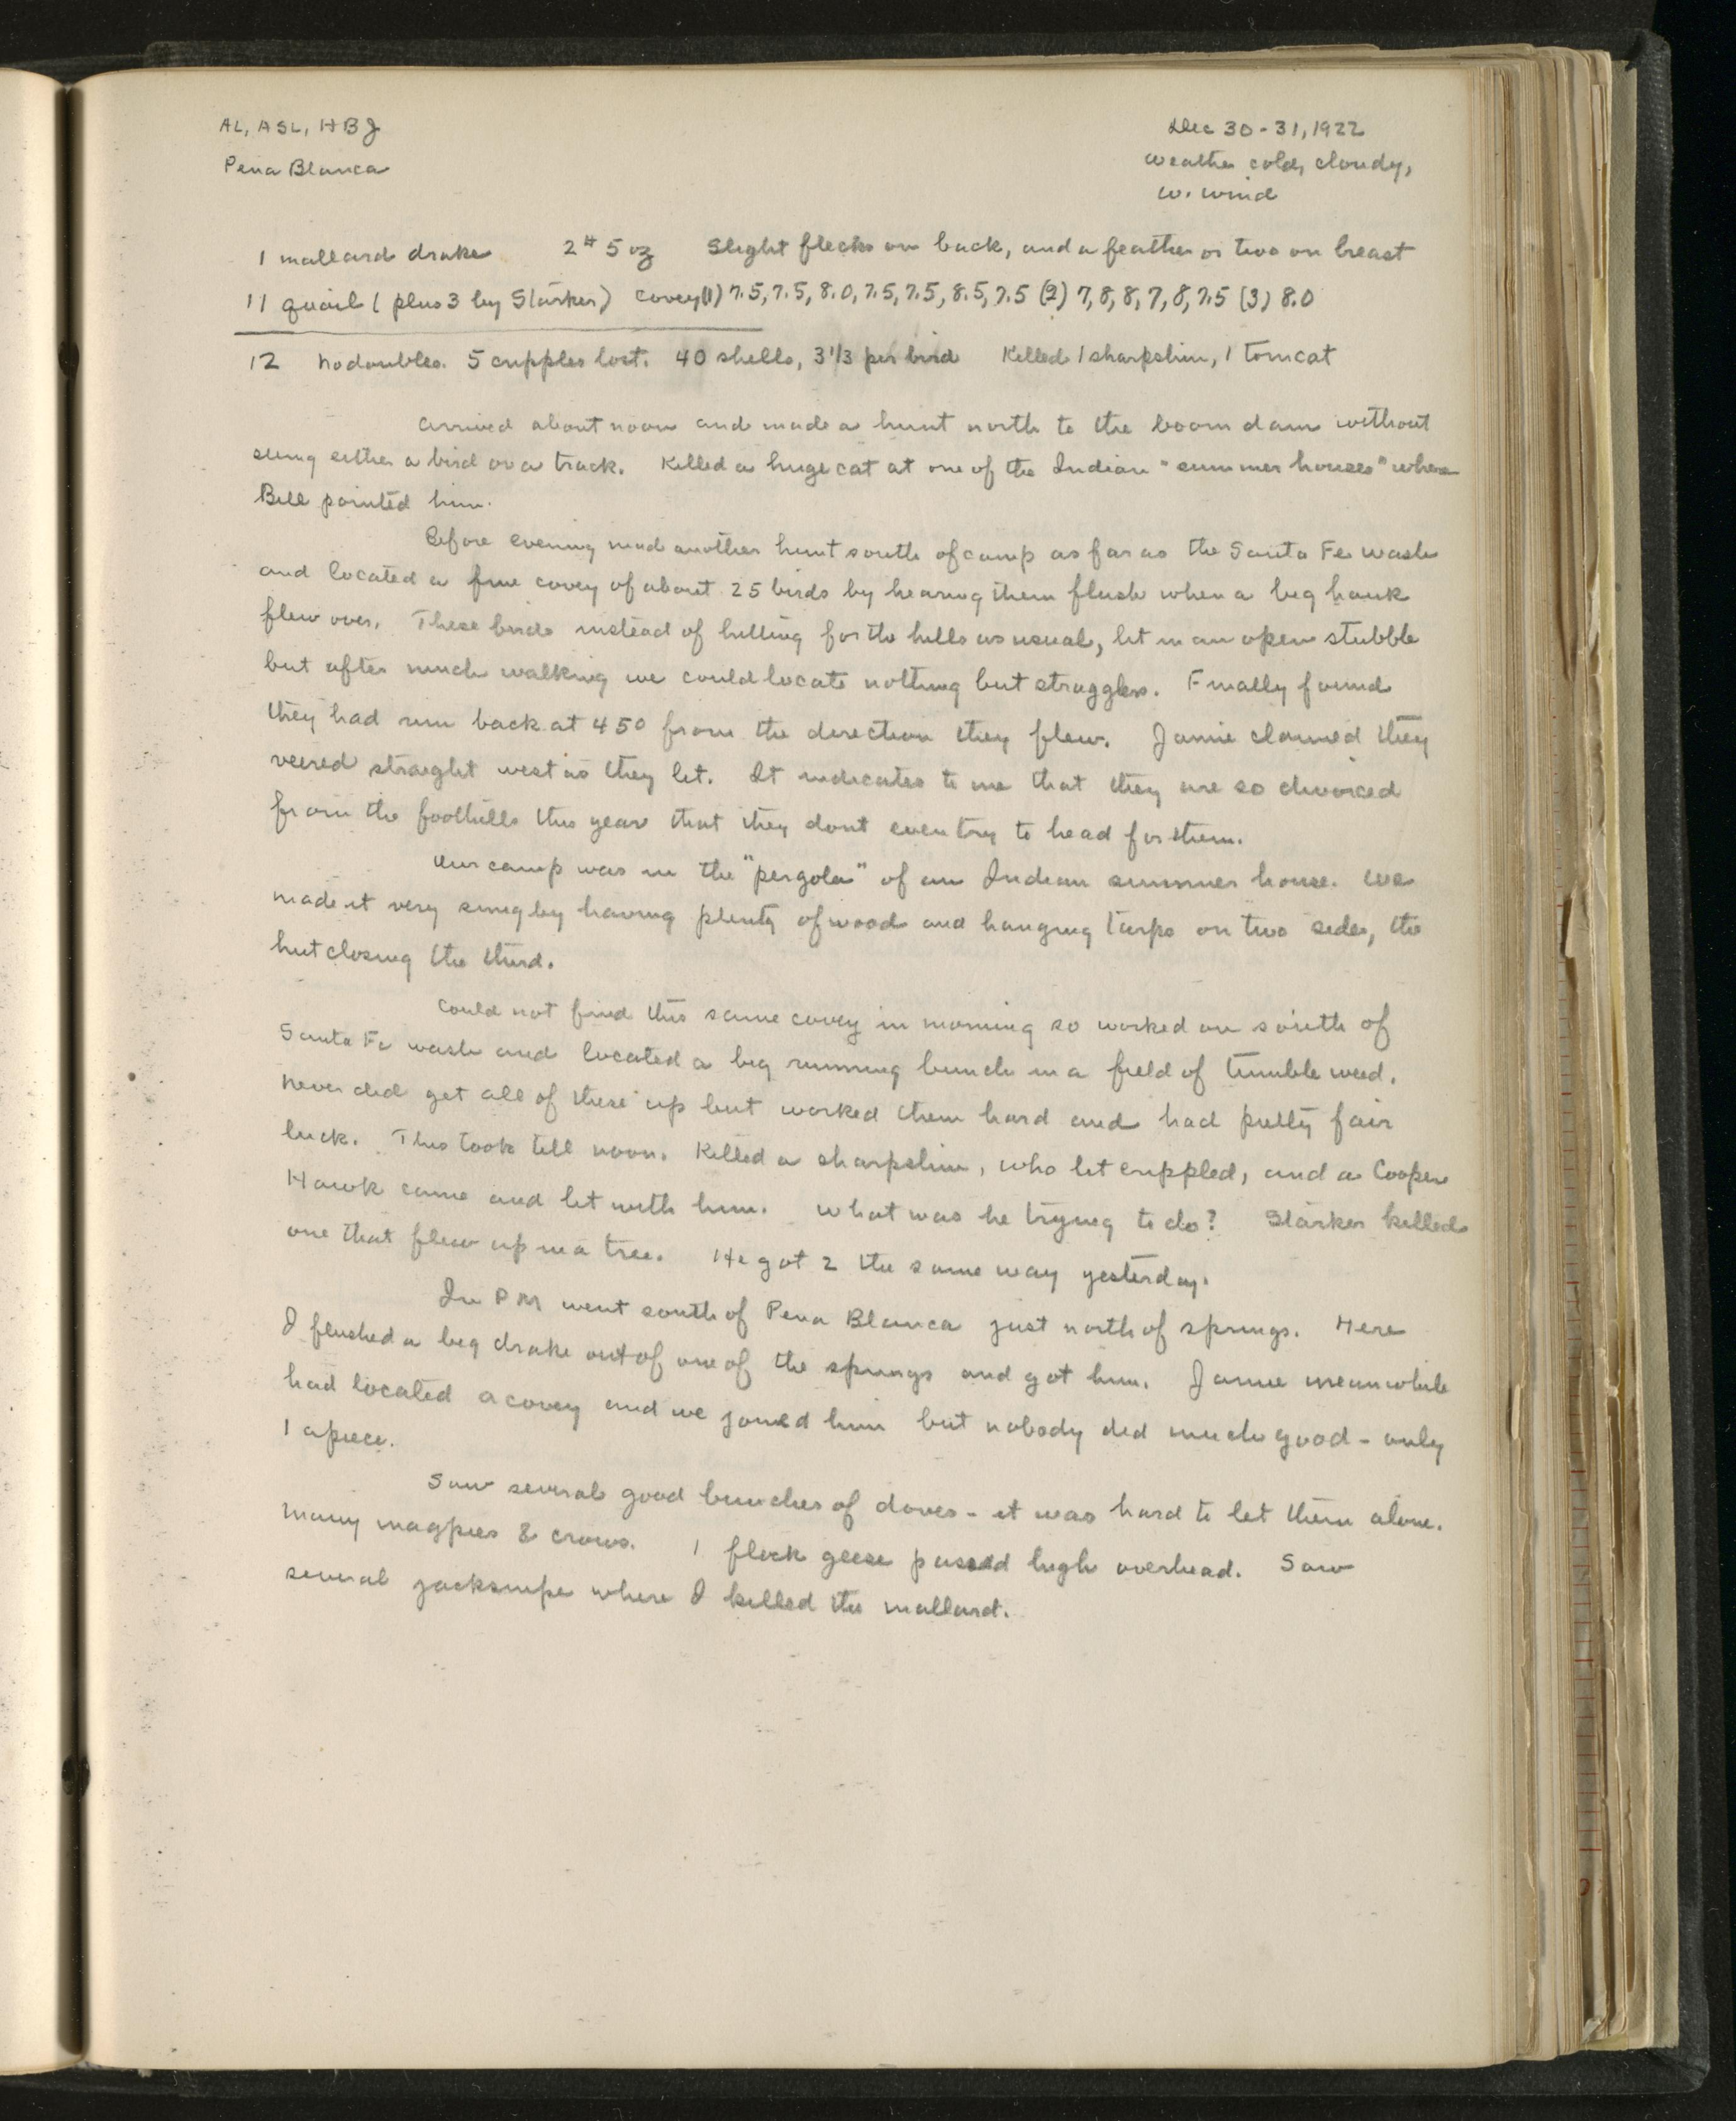 AL, ASL, HBJ
Pena Blanca
Dec 30-31, 1922
weather cold, cloudy,
w. wind
1 mallard drake 2# 5 oz Slight flecks on back, and a feather or two on breast
11 quail (plus 3 by Starker) covey (1) 7.5, 7.5, 8.0, 7.5, 7.5, 8.5, 7.5 (2) 7, 8, 8, 7, 8, 7.5 (3) 8.0
12 No doubles. 5 cripples lost. 40 shells, 3 1/3 per bird Killed 1 sharpshin, 1 tomcat
Arrived about noon and made a hunt north to the boom dam without
seeing either a bird or a track. Killed a huge cat at one of the Indian "summer houses" where
Bill pointed him.
Before evening made another hunt south of camp as far as the Santa Fe wash
and located a fine covey of about 25 birds by hearing them flush when a big hawk
flew over. These birds instead of hitting for the hills as usual, lit in an open stubble
but after much walking we could locate nothing but stragglers. Finally found
they had run back at 45° from the direction they flew. Jamie claimed they
veered straight west as they lit. It indicates to me that they are so divorced
from the foothills this year that they dont even try to head for them.
Our camp was in the "pergola" of an Indian summer house. We
made it very snug by having plenty of wood and hanging tarps on two sides, the
hut closing the third.
Could not find this same covey in morning so worked on south of
Santa Fe wash and located a big running bunch in a field of tumble weed.
Never did get all of these up but worked them hard and had pretty fair
luck. This took till noon. Killed a sharpshin, who lit crippled, and a Cooper
Hawk came and lit with him. What was he trying to do? Starker killed
one that flew up in a tree. He got 2 the same way yesterday.
In PM went south of Pena Blanca just north of springs. Here
I flushed a big drake out of one of the springs and got him. Jamie meanwhile
had located a covey and we joined him but nobody did much good - only
1 apiece.
Saw several good bunches of doves - it was hard to let them alone.
Many magpies & crows. 1 flock geese passed high overhead. Saw
several jacksnipe where I killed the mallard.